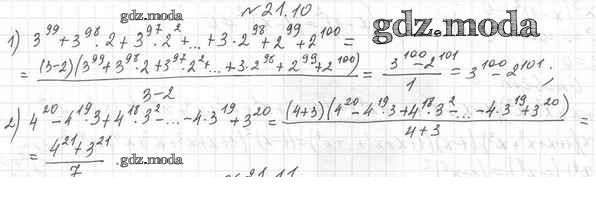 №21.10
gdz.moda
gdz.moda
1) 3^99 + 3^98 · 2 + 3^97 · 2^2 + ... + 3 · 2^98 + 2^99 + 2^100 =
= (3-2)(3^99 + 3^98 · 2 + 3^97 · 2^2 + ... + 3 · 2^98 + 2^99 + 2^100) / 3-2 = 3^100 - 2^101 / 1 = 3^100 - 2^101.
2) 4^20 - 4^19 · 3 + 4^18 · 3^2 - ... - 4 · 3^19 + 3^20 = (4+3)(4^20 - 4^19 · 3 + 4^18 · 3^2 - ... - 4 · 3^19 + 3^20) / 4+3 =
= 4^21 + 3^21 / 7 .
gdz.moda